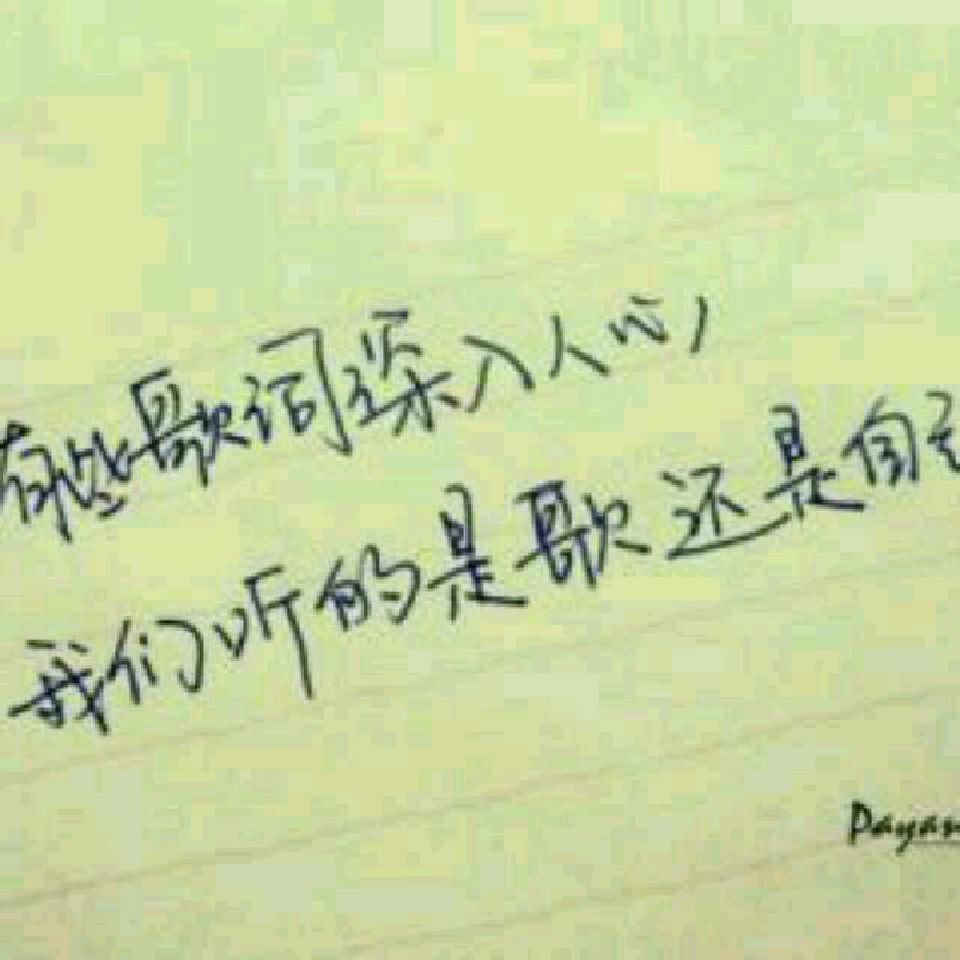 有些歌词深入人心
我们听的是歌还是自己
Payan